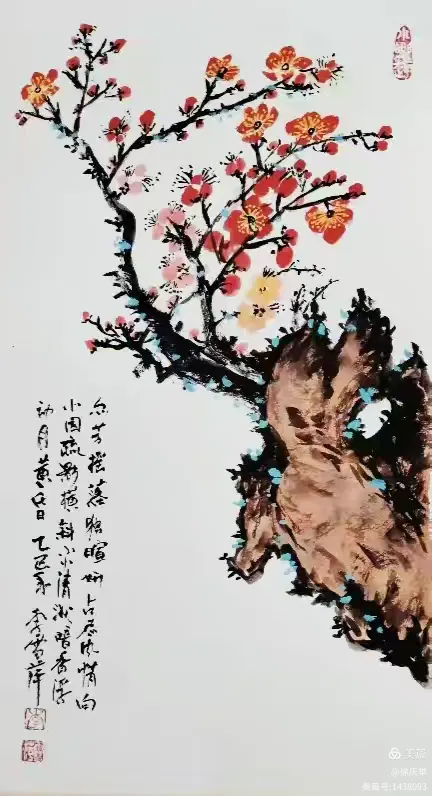 众芳摇落独暄妍占尽风情向
小园疏影横斜水清浅暗香浮
动月黄昏 乙巳年 李雪萍
美篇
美篇号:1438093